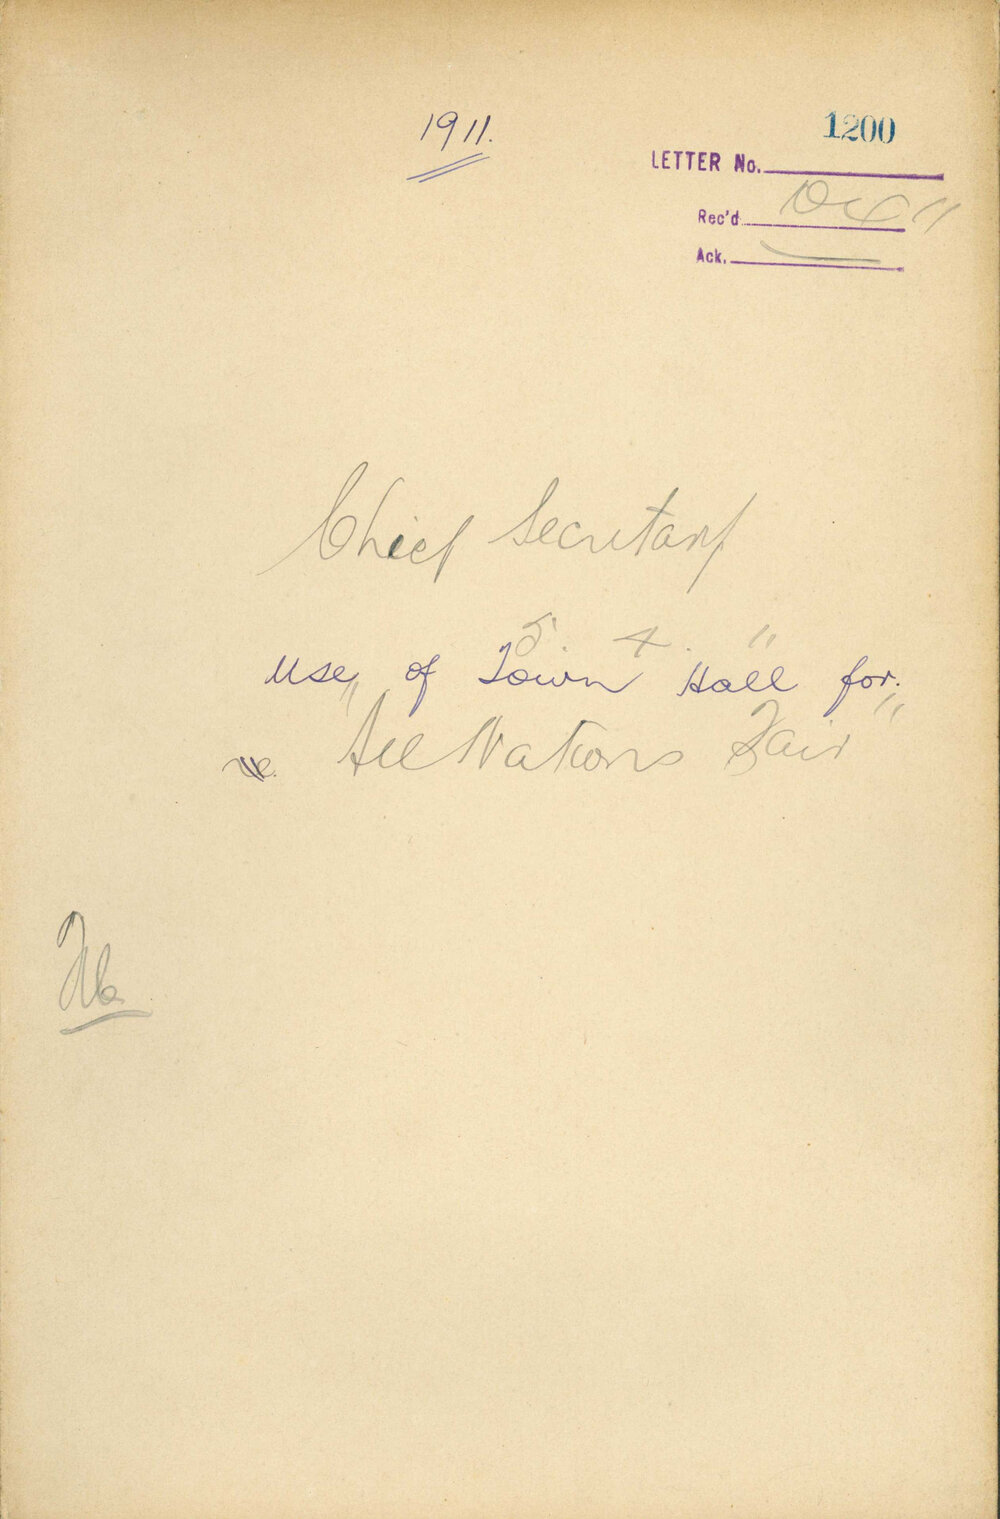 1911.
1200
LETTER No.
Rec'd
Ack.
Chief Secretary
5. 4. 11
Use of Town Hall for.
re "All Nations Fair"